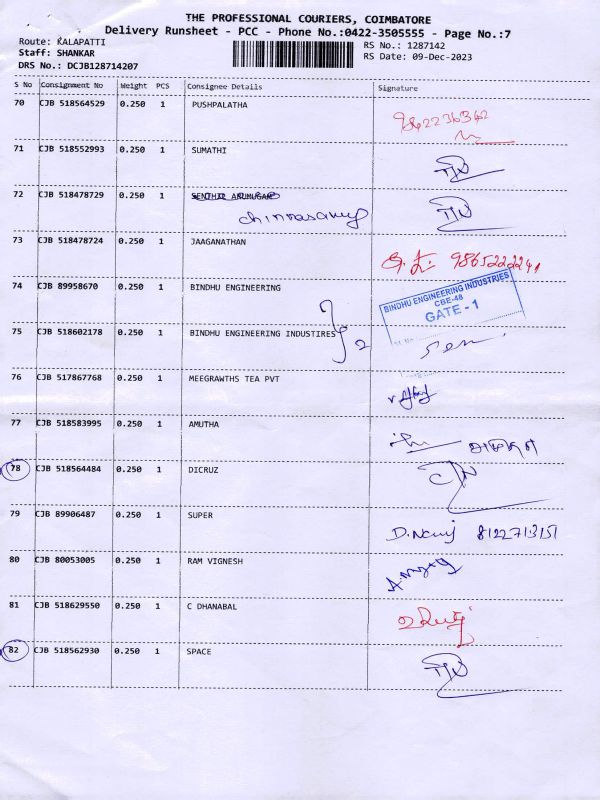 THE PROFESSIONAL COURIERS, COIMBATORE
Delivery Runsheet - PCC - Phone No.:0422-3505555 - Page No.:7
Route: KALAPATTI
RS No.: 1287142
Staff: SHANKAR
RS Date: 09-Dec-2023
DRS No.: DCJB128714207
S No Consignment No Weight PCS Consignee Details Signature
70 CJB 518564529 0.250 1 PUSHPALATHA
71 CJB 518552993 0.250 1 SUMATHI
72 CJB 518478729 0.250 1 SENTHIL ARUMUGAM
chinnasamy
73 CJB 518478724 0.250 1 JAAGANATHAN 9865222241
74 CJB 89958670 0.250 1 BINDHU ENGINEERING
BINDHU ENGINEERING INDUSTRIES
CBE-48
GATE - 1
75 CJB 518602178 0.250 1 BINDHU ENGINEERING INDUSTIRES 2
76 CJB 517867768 0.250 1 MEEGRAWTHS TEA PVT
77 CJB 518583995 0.250 1 AMUTHA
78 CJB 518564484 0.250 1 DICRUZ
79 CJB 89906487 0.250 1 SUPER 8122713151
80 CJB 80053005 0.250 1 RAM VIGNESH
81 CJB 518629550 0.250 1 C DHANABAL
82 CJB 518562930 0.250 1 SPACE